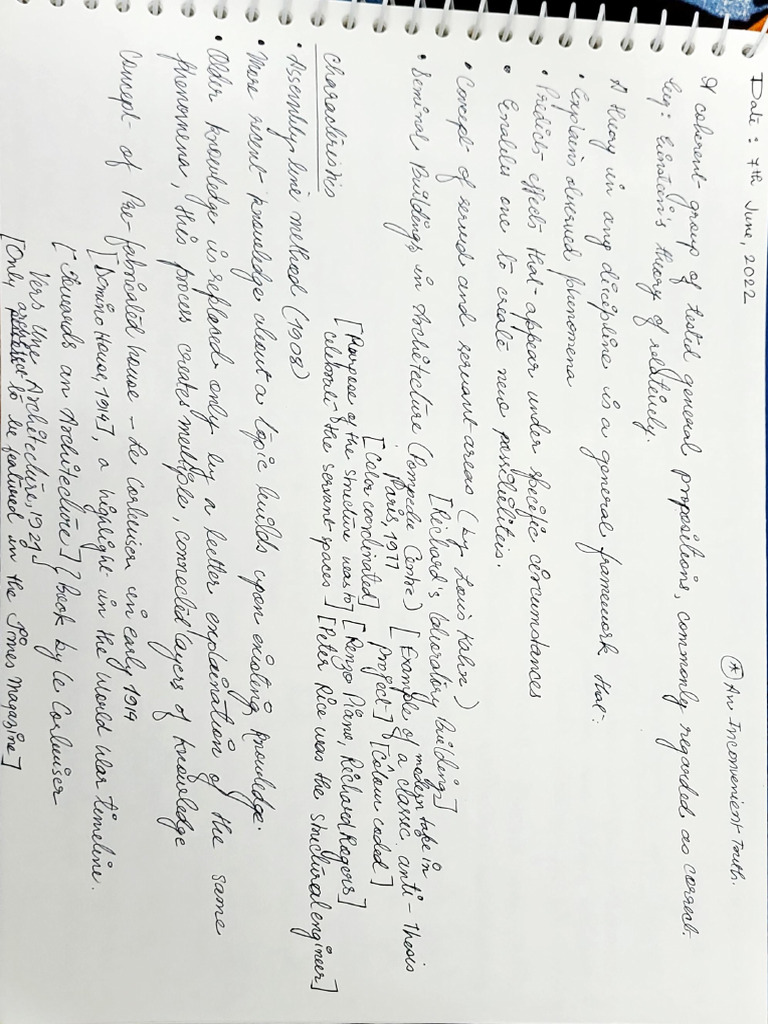 Date: 7th June, 2022
* An Inconvenient Truth.
A coherent group of tested general propositions, commonly regarded as correct.
Eg: Einstein's theory of relativity.
A theory in any discipline is a general framework that:
• Explains observed phenomena
• Predicts effects that appear under specific circumstances
• Enables one to create new possibilities.
• Concept of served and servant areas (by Louis Kahn)
[Richard's laboratory buildings]
• Seminal Buildings in Architecture (Pompedu Centre) [Example of a classic anti-thesis
modern take in
Paris, 1977
project] [Colour coded]
[Color coordinated]
[Purpose of the structure was to] [Renzo Piano, Richard Rogers]
celebrate the servant spaces] [Peter Rice was the structural engineer]
Characteristics
• Assembly-line method (1908)
• More recent knowledge about a logic builds upon existing knowledge.
• Older knowledge is replaced only by a better explaination of the same
phenomena, this process creates multiple, connected layers of knowledge
Concept of Pre-fabricated house - Le Corbusier in early 1914
[Domino House, 1914], a highlight in the world war timeline.
[Towards an Architecture] [Book by le Corbusier
Vers Une Architecture, 1929]
[Only architect to be featured in the Times Magazine]